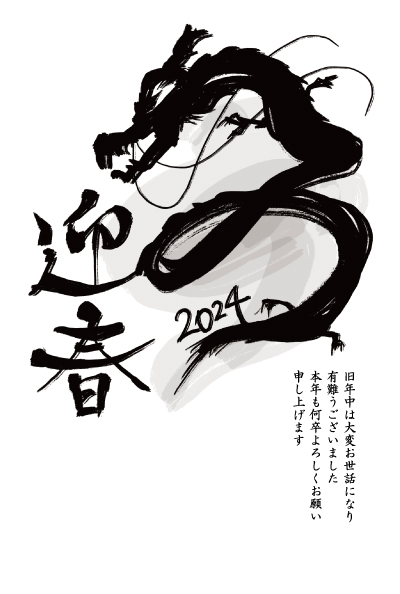 迎春
2024
旧年中は大変お世話になり
有難うございました
本年も何卒よろしくお願い
申し上げます